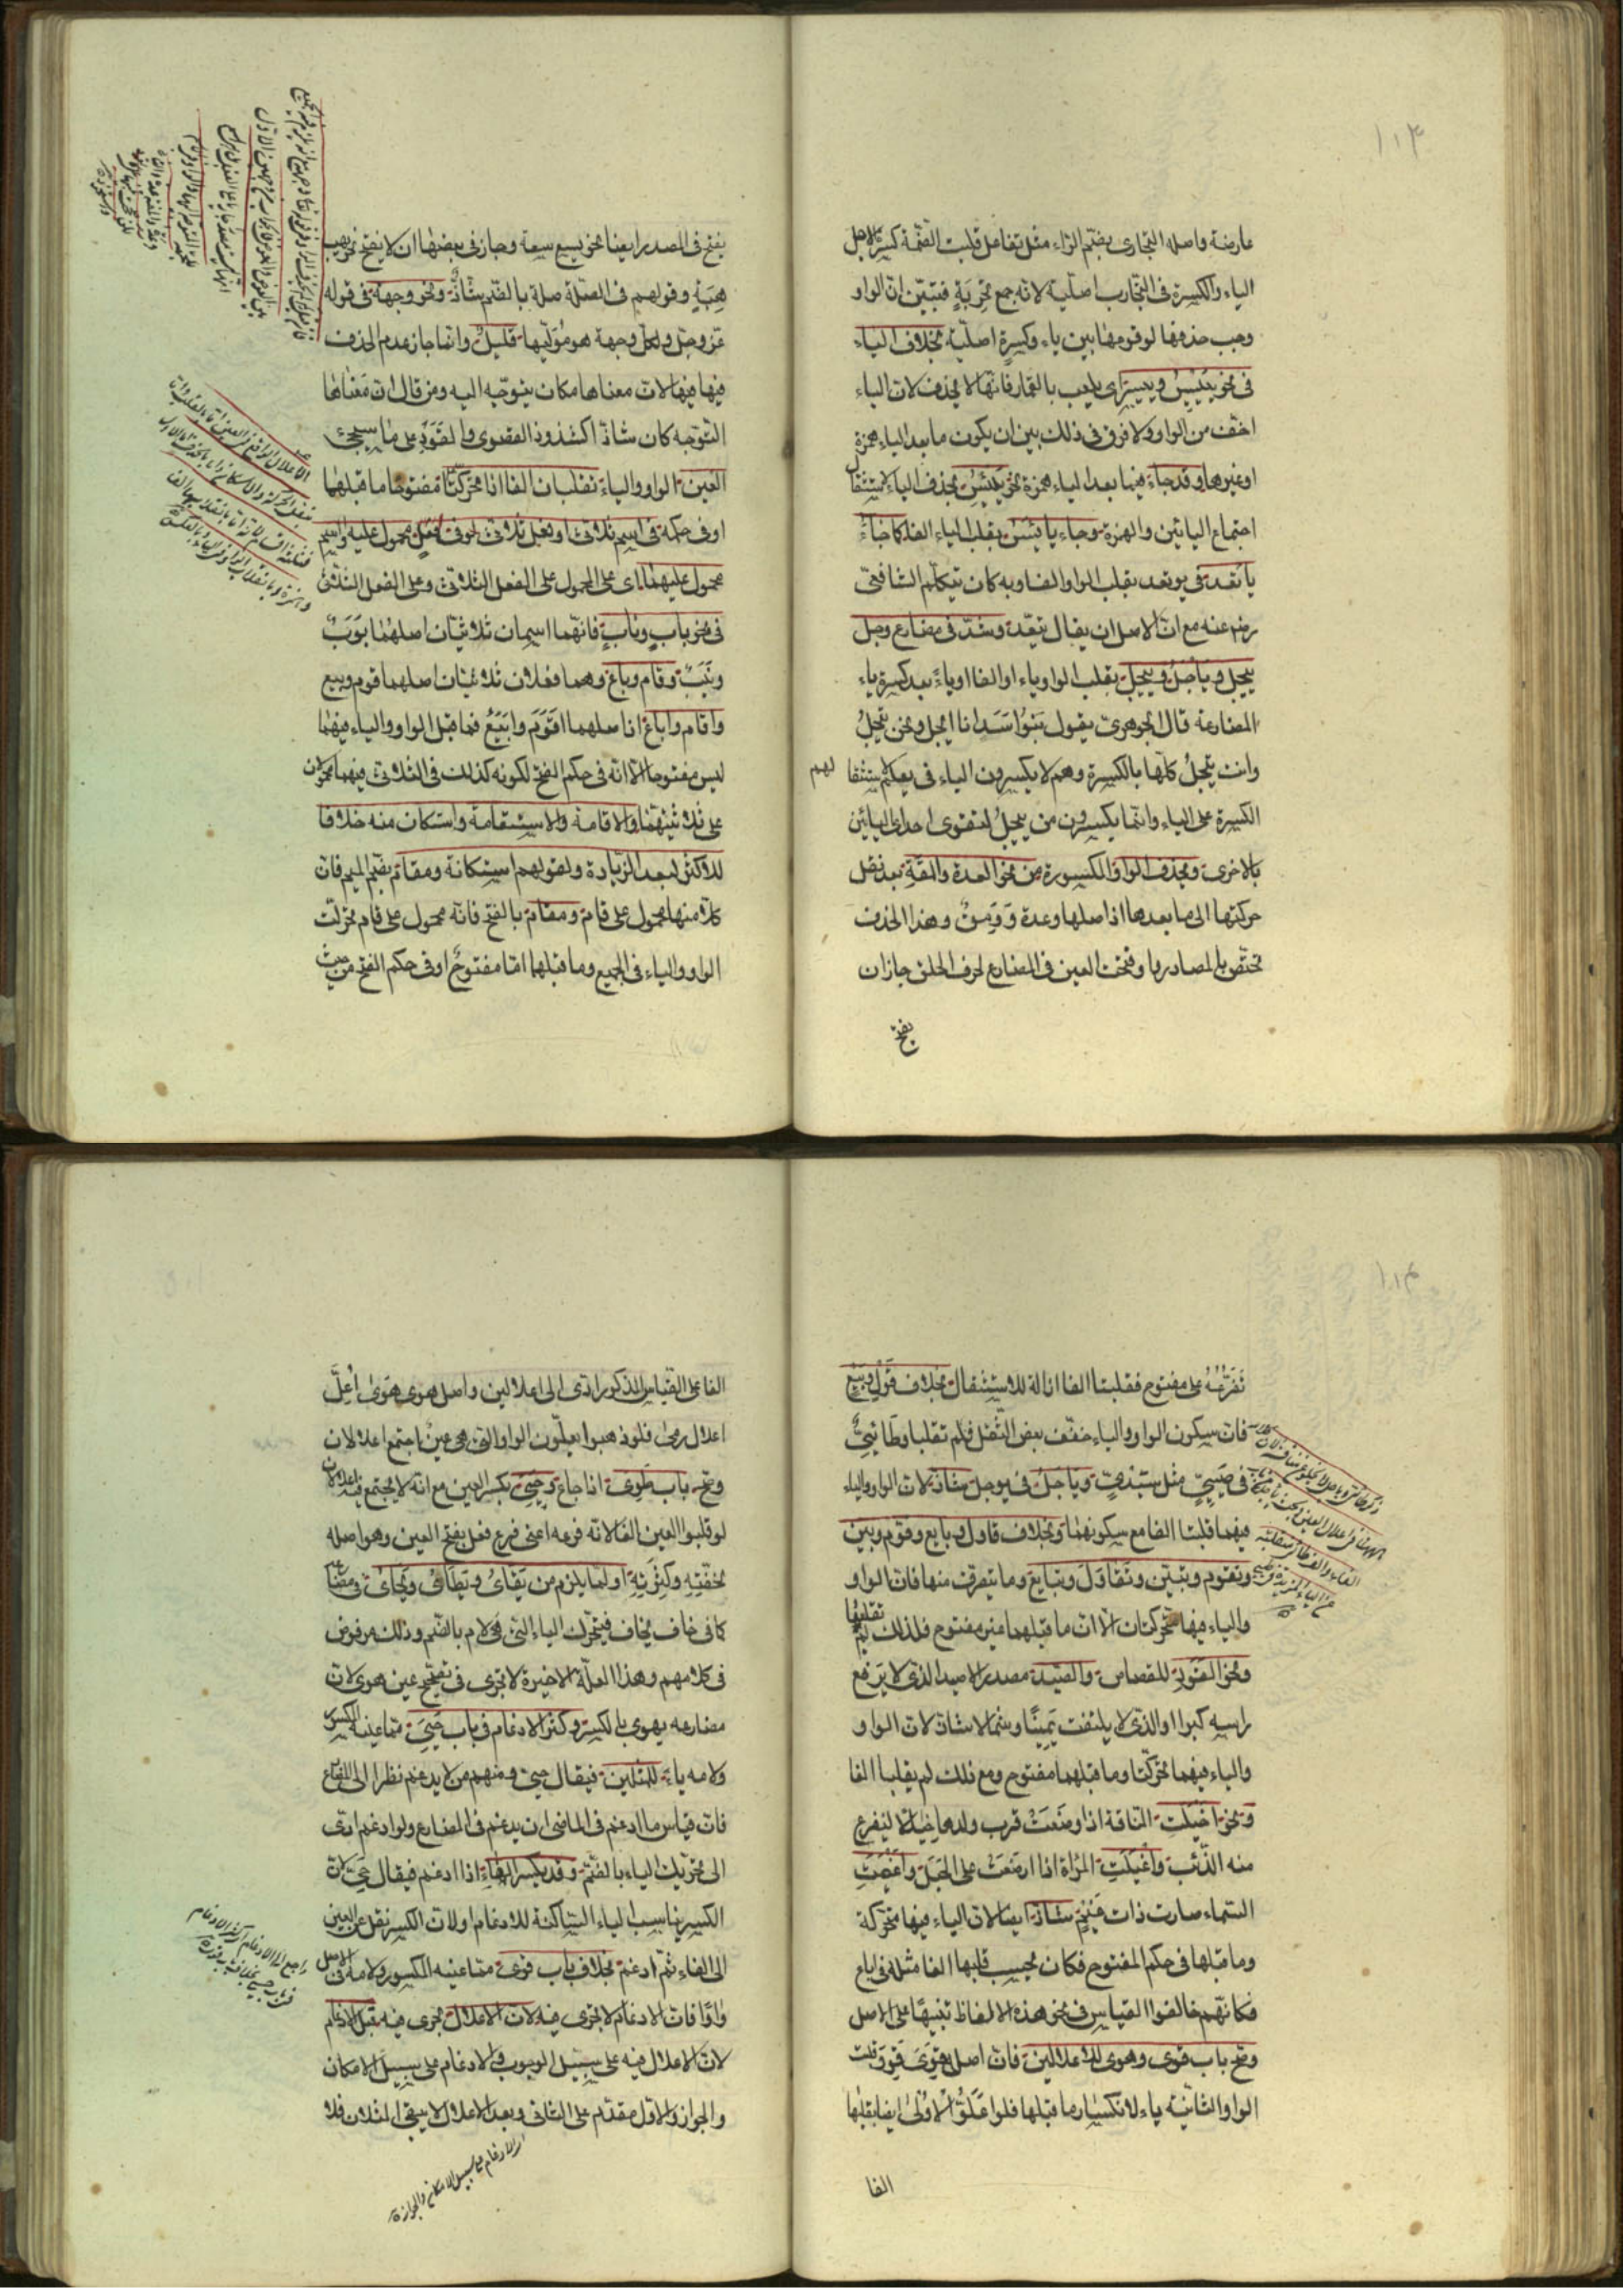 ١١٣
عارضة واصله التجاری بضم الراء مثل تفاعل قلبت الضمة كسرة لاجل
الیاء والكسرة فی التجارب اصلیة لانه جمع تجربة فتبین ان الواو
وجب حذفها لوقوعها بین یاء وكسرة اصلیة بخلاف الیاء
فی نحو ییئس وییسر ای یلعب بالقمار فانها لا یحذف لان الیاء
اخف من الواو ولا فرق فی ذلك بین ان یكون ما بعد الیاء همزة
او غیرها وقد جاء فیما بعد الیاء همزة نحو یئس بحذف الیاء لاستثقال
اجتماع الیائین والهمزة وجاء یائس بقلب الیاء الفا كما جاء
یاتعد فی یوتعد بقلب الواو الفا وبه كان یتكلم الشافعی
رضی عنه مع ان الاصل ان یقال یتعد وشذ فی مضارع وجل
ییجل ویاجل وییجل بقلب الواو یاء او الفا او یاء بعد كسرة یاء
المضارعة قال الجوهری یقول بنو اسد انا ایجل ونحن نیجل
وانت تیجل كلها بالكسرة وهم لا یكسرون الیاء فی یعلم لاستثقا لهم
الكسرة علی الیاء وانما یكسرون من ییجل لتقوی احدی الیائین
بالاخری ویحذف الواو الكسورة من نحو العدة والمقة بعد نقل
حركتها الی ما بعدها اذ اصلها وعدة وومق وهذا الحذف
تختص بالمصادر وما فتحت العین فی المضارع لحرف الحلق جاز ان
یفتح
یفتح فی المصدر ایضا نحو یسع سعة وجاز فی بعضها ان لا یفتح نحو یهب
هبة وقولهم فی الصلة صلة بالضم شاذ ونحو وجهة فی قوله
عز وجل ولكل وجهة هو مولیها قلیل وانما جاز عدم الحذف
فیها لان معناها مكان یتوجه الیه ومن قال ان معناها
التوجه كان شاذا كشذوذ القصوی والقود علی ما سیجیء
العین الواو والیاء تقلبان الفا اذا تحركتا مفتوحا ما قبلهما
او فی حكمه فی اسم ثلاثی او فعل ثلاثی او فی فعل محمول علیه واسم
محمول علیهما ای علی المحمول علی الفعل الثلاثی وعلی الفعل الثلاثی
فی نحو باب وناب فانهما اسمان ثلاثیان اصلهما بوب
ونیب وقام وباع وهما فعلان ثلاثیان اصلهما قوم وبیع
واقام واباع اذ اصلهما اقوم وابیع فما قبل الواو والیاء فیهما
لیس مفتوحا الا انه فی حكم الفتح لكونه كذلك فی الثلاثی فیهما محمولان
علی ثلاثیهما والاقامة والاستقامة واستكان منه خلافا
للاكثر لبعد الزیادة ولقولهم استكانة ومقام بضم المیم فان
كلا منها محمول علی قام ومقام بالفتح فانه محمول علی قام تحركت
الواو والیاء فی الجمیع وما قبلها اما مفتوح او فی حكم الفتح من حیث
١١۴
تفرعه علی مفتوح فقلبتا الفا ازالة للاستثقال بخلاف قول وبیع
فان سكون الواو والیاء خفف بعض الثقل فلم تقلبا وطائی
فی ویاجل فی یوجل شاذ لان الواو والیاء
فیهما قلبتا الفا مع سكونهما وبخلاف قاول وبایع وقوم وبین
وتقوم وتبین وتقاول وتبایع وما یتصرف منها فان الواو
والیاء فیها متحركتان الا ان ما قبلهما غیر مفتوح فلذلك لم تقلبها
ونحو القود للقصاص والصید مصدر الاصید الذی لا یرفع
راسه كبرا او الذی لا یلتفت یمینا وشمالا شاذ لان الواو
والیاء فیهما تحركتا وما قبلهما مفتوح ومع ذلك لم یقلبا الفا
ونحو اخیلت الناقة اذا وضعت قرب ولدها خیالا لیفزع
منه الذئب واغیلت المراة اذا ارضعت علی الحبل واغیمت
السماء صارت ذات غیم شاذ ایضا لان الیاء فیها متحركة
وما قبلها فی حكم المفتوح فكان یجب قلبها الفا مثله فی اباع
فكانهم خالفوا القیاس فی نحو هذه الالفاظ تنبیها علی الاصل
وصح باب قوی وهوی للاعلالین فان اصل قوی قوو قلبت
الواو الثانیة یاء لانكسار ما قبلها فلو اعلوا الاولی ایضا بقلبها
الفا
الفا علی القیاس المذكور ادی الی اعلالین واصل هوی هوی اعل
اعلال رمی فلو ذهبوا یعلون الواو التی هی عین اجتمع اعلالان
وصح باب طوی اذا جاع وحیی بكسر العین مع انه لا یجتمع فیه اعلالان
لو قلبوا العین الفا لانه فرعه اعنی فرع فعل بفتح العین وهو اصله
لخفته وكثرته او لما یلزم من یقای ویطای ویحای فی مضا
كما فی خاف یخاف فیتحرك الیاء التی هی لام بالضم وذلك مرفوض
فی كلامهم وهذا العلة الاخیرة لا تجری فی تصحیح عین هوی لان
مضارعه یهوی بالكسر وكثر الادغام فی باب حیی مما عینه الكسور
ولامه یاء للمثلین فیقال حی ومنهم من لا یدغم نظرا الی
فان قیاس ما ادغم فی الماضی ان یدغم فی المضارع ولو ادغم ادی
الی تحریك الیاء بالضم وقد یكسر الفاء اذا ادغم فیقال حی لان
الكسر یناسب الیاء الساكنة للادغام او لان الكسر نقل عن العین
الی الفاء ثم ادغم بخلاف باب قوی مما عینه المكسور ولامه فی الاصل
واو فان الادغام لا یجری فیه لان الاعلال یجری فیه قبل الادغام
لان الاعلال فیه علی سبیل الوجوب والادغام علی سبیل الامكان
والجواز والاول مقدم علی الثانی وبعد الاعلال لا یبقی المثلان فلا
الادغام علی سبیل الامكان والجواز